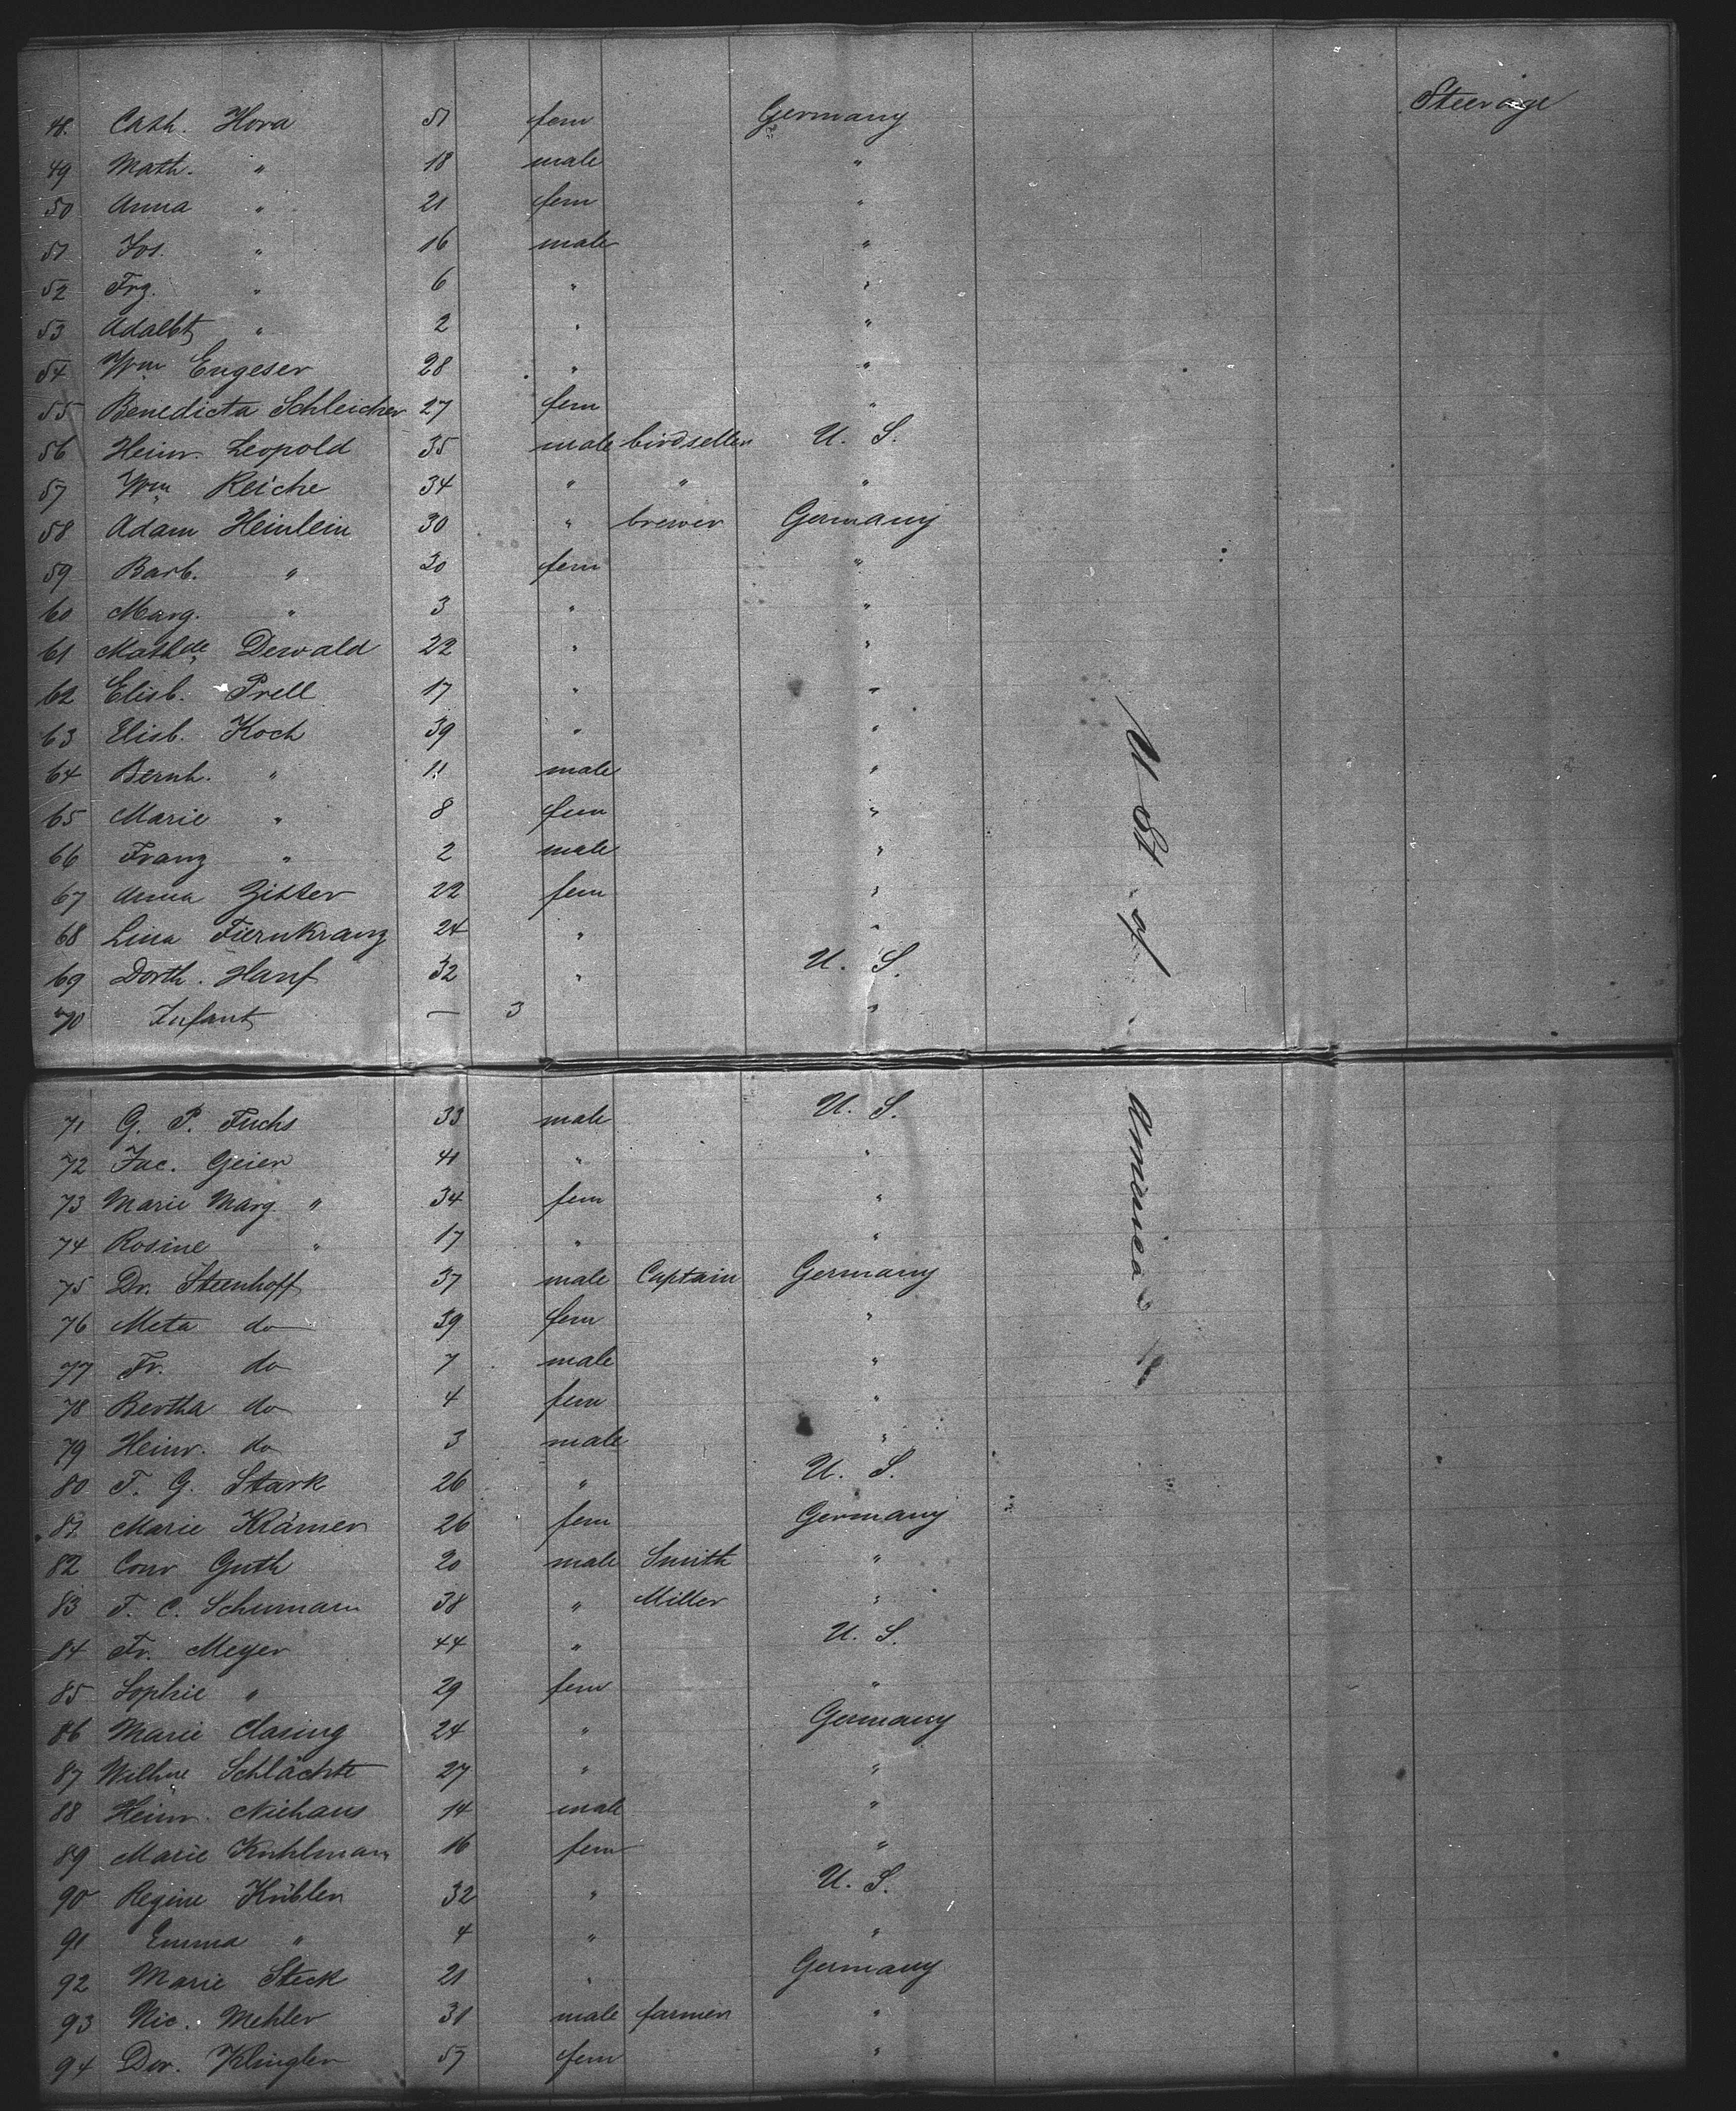 Steerage
48. Cath. Hora 51 fem Germany
49 Math. " 18 male "
50 Anna " 21 fem "
51 Jos. " 16 male "
52 Frz. " 6 " "
53 Adalbt " 2 " "
54 Wm Engeser 28 " "
55 Benedicta Schleicher 27 fem "
56 Heinr. Leopold 35 male birdseller U. S.
57 Wm Reiche 34 " " "
58 Adam Heinlein 30 " brewer Germany
59 Barb. " 30 fem "
60 Marg. " 3 " "
61 Mathde Dewald 22 " "
62 Elisb. Prell 17 " "
63 Elisb. Koch 39 " "
64 Bernh. " 11 male "
65 Marie " 8 fem "
66 Franz " 2 male "
67 Anna Zitter 22 fem "
68 Lina Fiernkranz 24 " "
69 Dorth. Hanf 32 " U. S.
70 Infant — 3 "
71 G. P. Fuchs 33 male U. S.
72 Jac. Geier 41 " "
73 Marie Marg " 34 fem "
74 Rosine " 17 " "
75 Dr. Steenhoff 37 male Captain Germany
76 Meta do 39 fem "
77 Fr. do 7 male "
78 Bertha do 4 fem "
79 Heinr. do 3 male "
80 F. G. Stark 26 " U. S.
81 Marie Krämer 26 fem Germany
82 Conr Guth 20 male Smith "
83 F. C. Schumann 38 " Miller "
84 Fr. Meyer 44 " U. S.
85 Sophie " 29 fem "
86 Marie Clasing 24 " Germany
87 Wilhne Schlächte 27 " "
88 Heinr. Niehaus 14 male "
89 Marie Kuhlmann 16 fem "
90 Regine Kübler 32 " U. S.
91 Emma " 4 " "
92 Marie Steck 21 " Germany
93 Nic. Mehler 31 male farmer "
94 Dor. Klingler 57 fem "
U St. of America